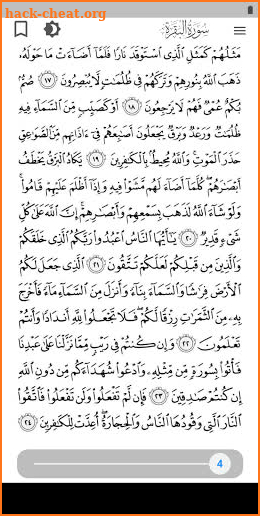 hack-cheat.org
سورة البقرة
مَثَلُهُمْ كَمَثَلِ ٱلَّذِى ٱسْتَوْقَدَ نَارًا فَلَمَّآ أَضَآءَتْ مَا حَوْلَهُۥ
ذَهَبَ ٱللَّهُ بِنُورِهِمْ وَتَرَكَهُمْ فِى ظُلُمَـٰتٍ لَّا يُبْصِرُونَ ١٧ صُمٌّۢ
بُكْمٌ عُمْىٌ فَهُمْ لَا يَرْجِعُونَ ١٨ أَوْ كَصَيِّبٍ مِّنَ ٱلسَّمَآءِ فِيهِ
ظُلُمَـٰتٌ وَرَعْدٌ وَبَرْقٌ يَجْعَلُونَ أَصَـٰبِعَهُمْ فِىٓ ءَاذَانِهِم مِّنَ ٱلصَّوَٰعِقِ
حَذَرَ ٱلْمَوْتِ ۚ وَٱللَّهُ مُحِيطٌۢ بِٱلْكَـٰفِرِينَ ١٩ يَكَادُ ٱلْبَرْقُ يَخْطَفُ
أَبْصَـٰرَهُمْ ۖ كُلَّمَآ أَضَآءَ لَهُم مَّشَوْا۟ فِيهِ وَإِذَآ أَظْلَمَ عَلَيْهِمْ قَامُوا۟ ۚ
وَلَوْ شَآءَ ٱللَّهُ لَذَهَبَ بِسَمْعِهِمْ وَأَبْصَـٰرِهِمْ ۚ إِنَّ ٱللَّهَ عَلَىٰ كُلِّ
شَىْءٍ قَدِيرٌ ٢٠ يَـٰٓأَيُّهَا ٱلنَّاسُ ٱعْبُدُوا۟ رَبَّكُمُ ٱلَّذِى خَلَقَكُمْ
وَٱلَّذِينَ مِن قَبْلِكُمْ لَعَلَّكُمْ تَتَّقُونَ ٢١ ٱلَّذِى جَعَلَ لَكُمُ
ٱلْأَرْضَ فِرَٰشًا وَٱلسَّمَآءَ بِنَآءً وَأَنزَلَ مِنَ ٱلسَّمَآءِ مَآءً فَأَخْرَجَ
بِهِۦ مِنَ ٱلثَّمَرَٰتِ رِزْقًا لَّكُمْ ۖ فَلَا تَجْعَلُوا۟ لِلَّهِ أَندَادًا وَأَنتُمْ
تَعْلَمُونَ ٢٢ وَإِن كُنتُمْ فِى رَيْبٍ مِّمَّا نَزَّلْنَا عَلَىٰ عَبْدِنَا
فَأْتُوا۟ بِسُورَةٍ مِّن مِّثْلِهِۦ وَٱدْعُوا۟ شُهَدَآءَكُم مِّن دُونِ ٱللَّهِ
إِن كُنتُمْ صَـٰدِقِينَ ٢٣ فَإِن لَّمْ تَفْعَلُوا۟ وَلَن تَفْعَلُوا۟ فَٱتَّقُوا۟
ٱلنَّارَ ٱلَّتِى وَقُودُهَا ٱلنَّاسُ وَٱلْحِجَارَةُ ۖ أُعِدَّتْ لِلْكَـٰفِرِينَ ٢٤
4